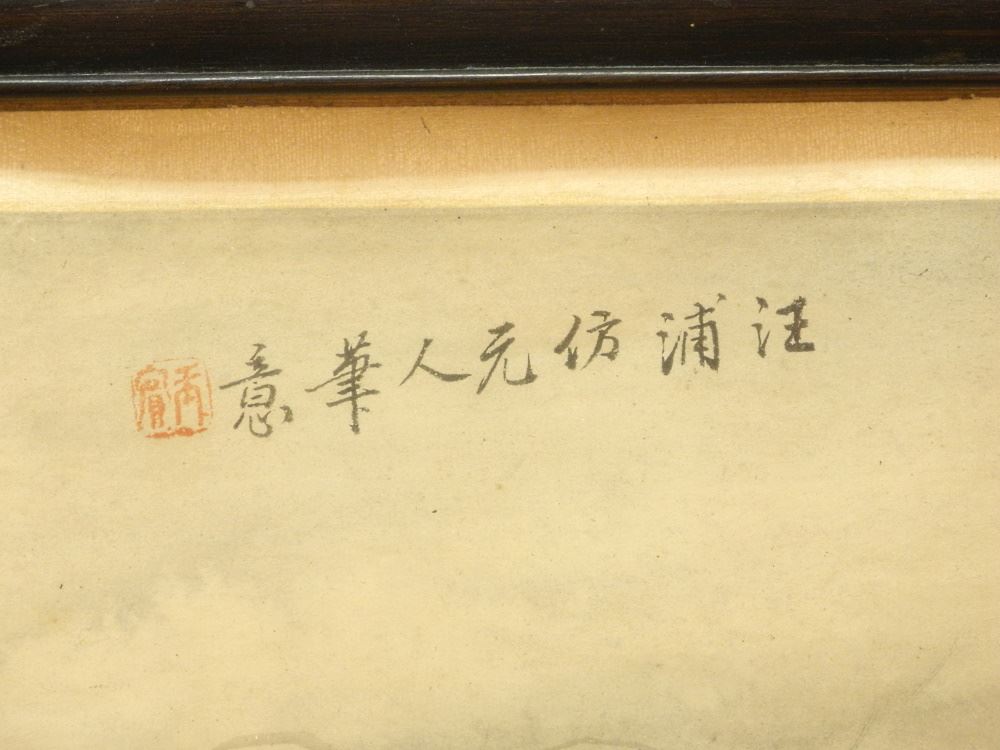 汪浦仿元人筆意